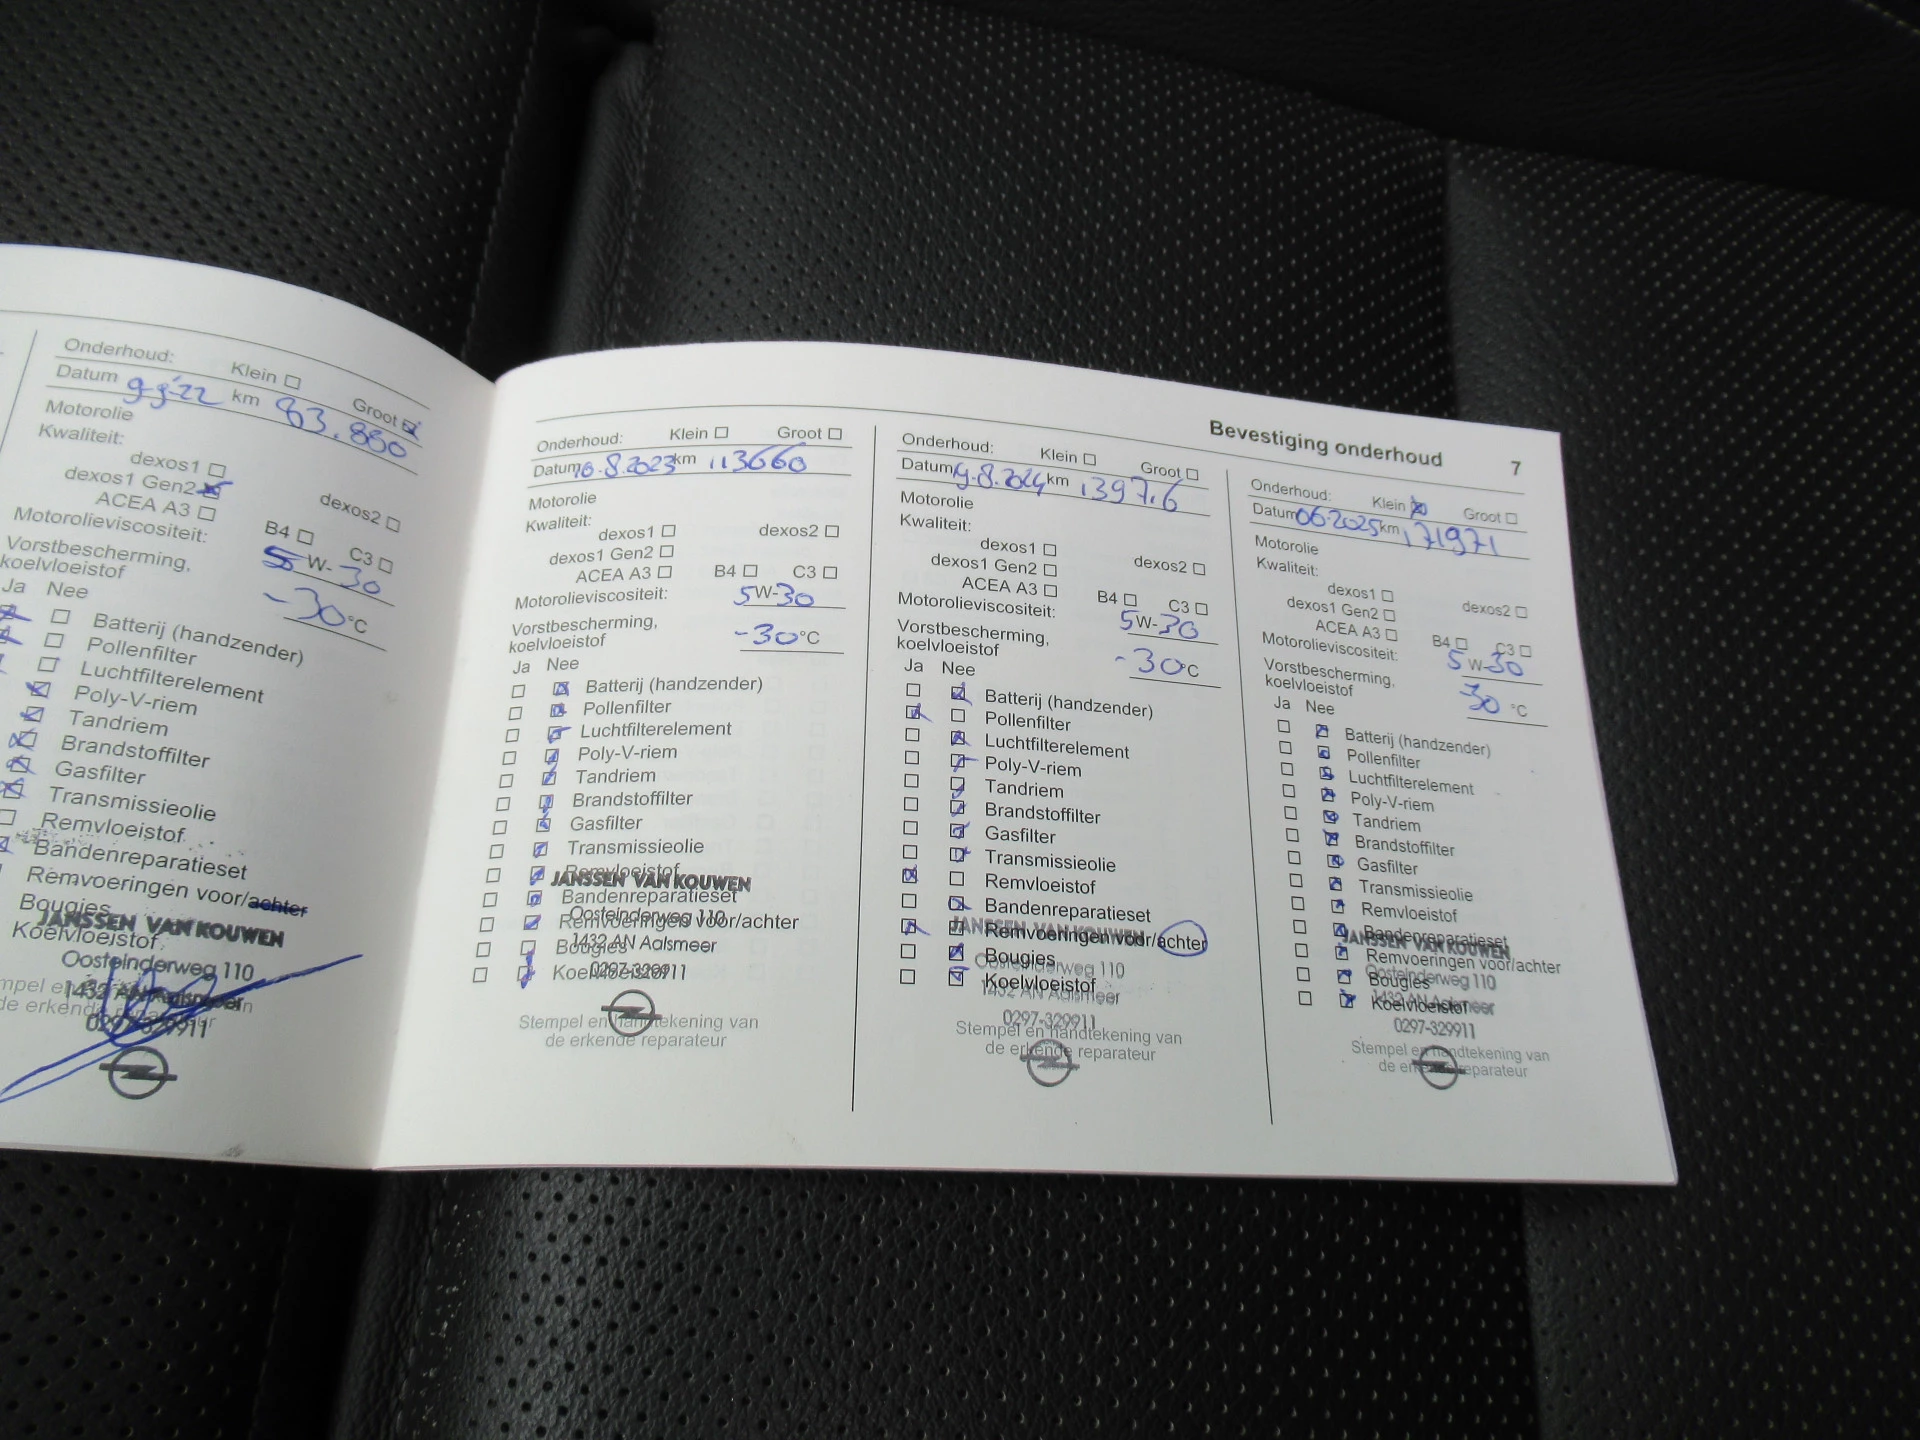 Onderhoud: Klein Groot
Datum km 83.880
Motorolie
Kwaliteit:
dexos1
dexos1 Gen2 dexos2
ACEA A3 B4 C3
Motorolieviscositeit: 5 W- 30
Vorstbescherming,
koelvloeistof -30 °C
Ja Nee
Batterij (handzender)
Pollenfilter
Luchtfilterelement
Poly-V-riem
Tandriem
Brandstoffilter
Gasfilter
Transmissieolie
Remvloeistof
Bandenreparatieset
Remvoeringen voor/achter
Bougies
Koelvloeistof
JANSSEN VAN KOUWEN
Oosteinderweg 110
1432 AN Aalsmeer
0297-329911
Bevestiging onderhoud 7
Onderhoud: Klein Groot
Datum 10.8.2023 km 113660
Motorolie
Kwaliteit:
dexos1 dexos2
dexos1 Gen2
ACEA A3 B4 C3
Motorolieviscositeit: 5 W- 30
Vorstbescherming,
koelvloeistof -30 °C
Ja Nee
Batterij (handzender)
Pollenfilter
Luchtfilterelement
Poly-V-riem
Tandriem
Brandstoffilter
Gasfilter
Transmissieolie
Remvloeistof
Bandenreparatieset
Remvoeringen voor/achter
Bougies
Koelvloeistof
JANSSEN VAN KOUWEN
Oosteinderweg 110
1432 AN Aalsmeer
0297-329911
Stempel en handtekening van
de erkende reparateur
Onderhoud: Klein Groot
Datum km
Motorolie
Kwaliteit:
dexos1
dexos1 Gen2 dexos2
ACEA A3 B4 C3
Motorolieviscositeit: 5 W- 30
Vorstbescherming,
koelvloeistof -30 °C
Ja Nee
Batterij (handzender)
Pollenfilter
Luchtfilterelement
Poly-V-riem
Tandriem
Brandstoffilter
Gasfilter
Transmissieolie
Remvloeistof
Bandenreparatieset
Remvoeringen voor/achter
Bougies
Koelvloeistof
JANSSEN VAN KOUWEN
Oosteinderweg 110
1432 AN Aalsmeer
0297-329911
Stempel en handtekening van
de erkende reparateur
Onderhoud: Klein Groot
Datum 06-2025 km 171971
Motorolie
Kwaliteit:
dexos1
dexos1 Gen2 dexos2
ACEA A3 B4 C3
Motorolieviscositeit: 5 W- 30
Vorstbescherming,
koelvloeistof 30 °C
Ja Nee
Batterij (handzender)
Pollenfilter
Luchtfilterelement
Poly-V-riem
Tandriem
Brandstoffilter
Gasfilter
Transmissieolie
Remvloeistof
Bandenreparatieset
Remvoeringen voor/achter
Bougies
Koelvloeistof
JANSSEN VAN KOUWEN
Oosteinderweg 110
1432 AN Aalsmeer
0297-329911
Stempel en handtekening van
de erkende reparateur